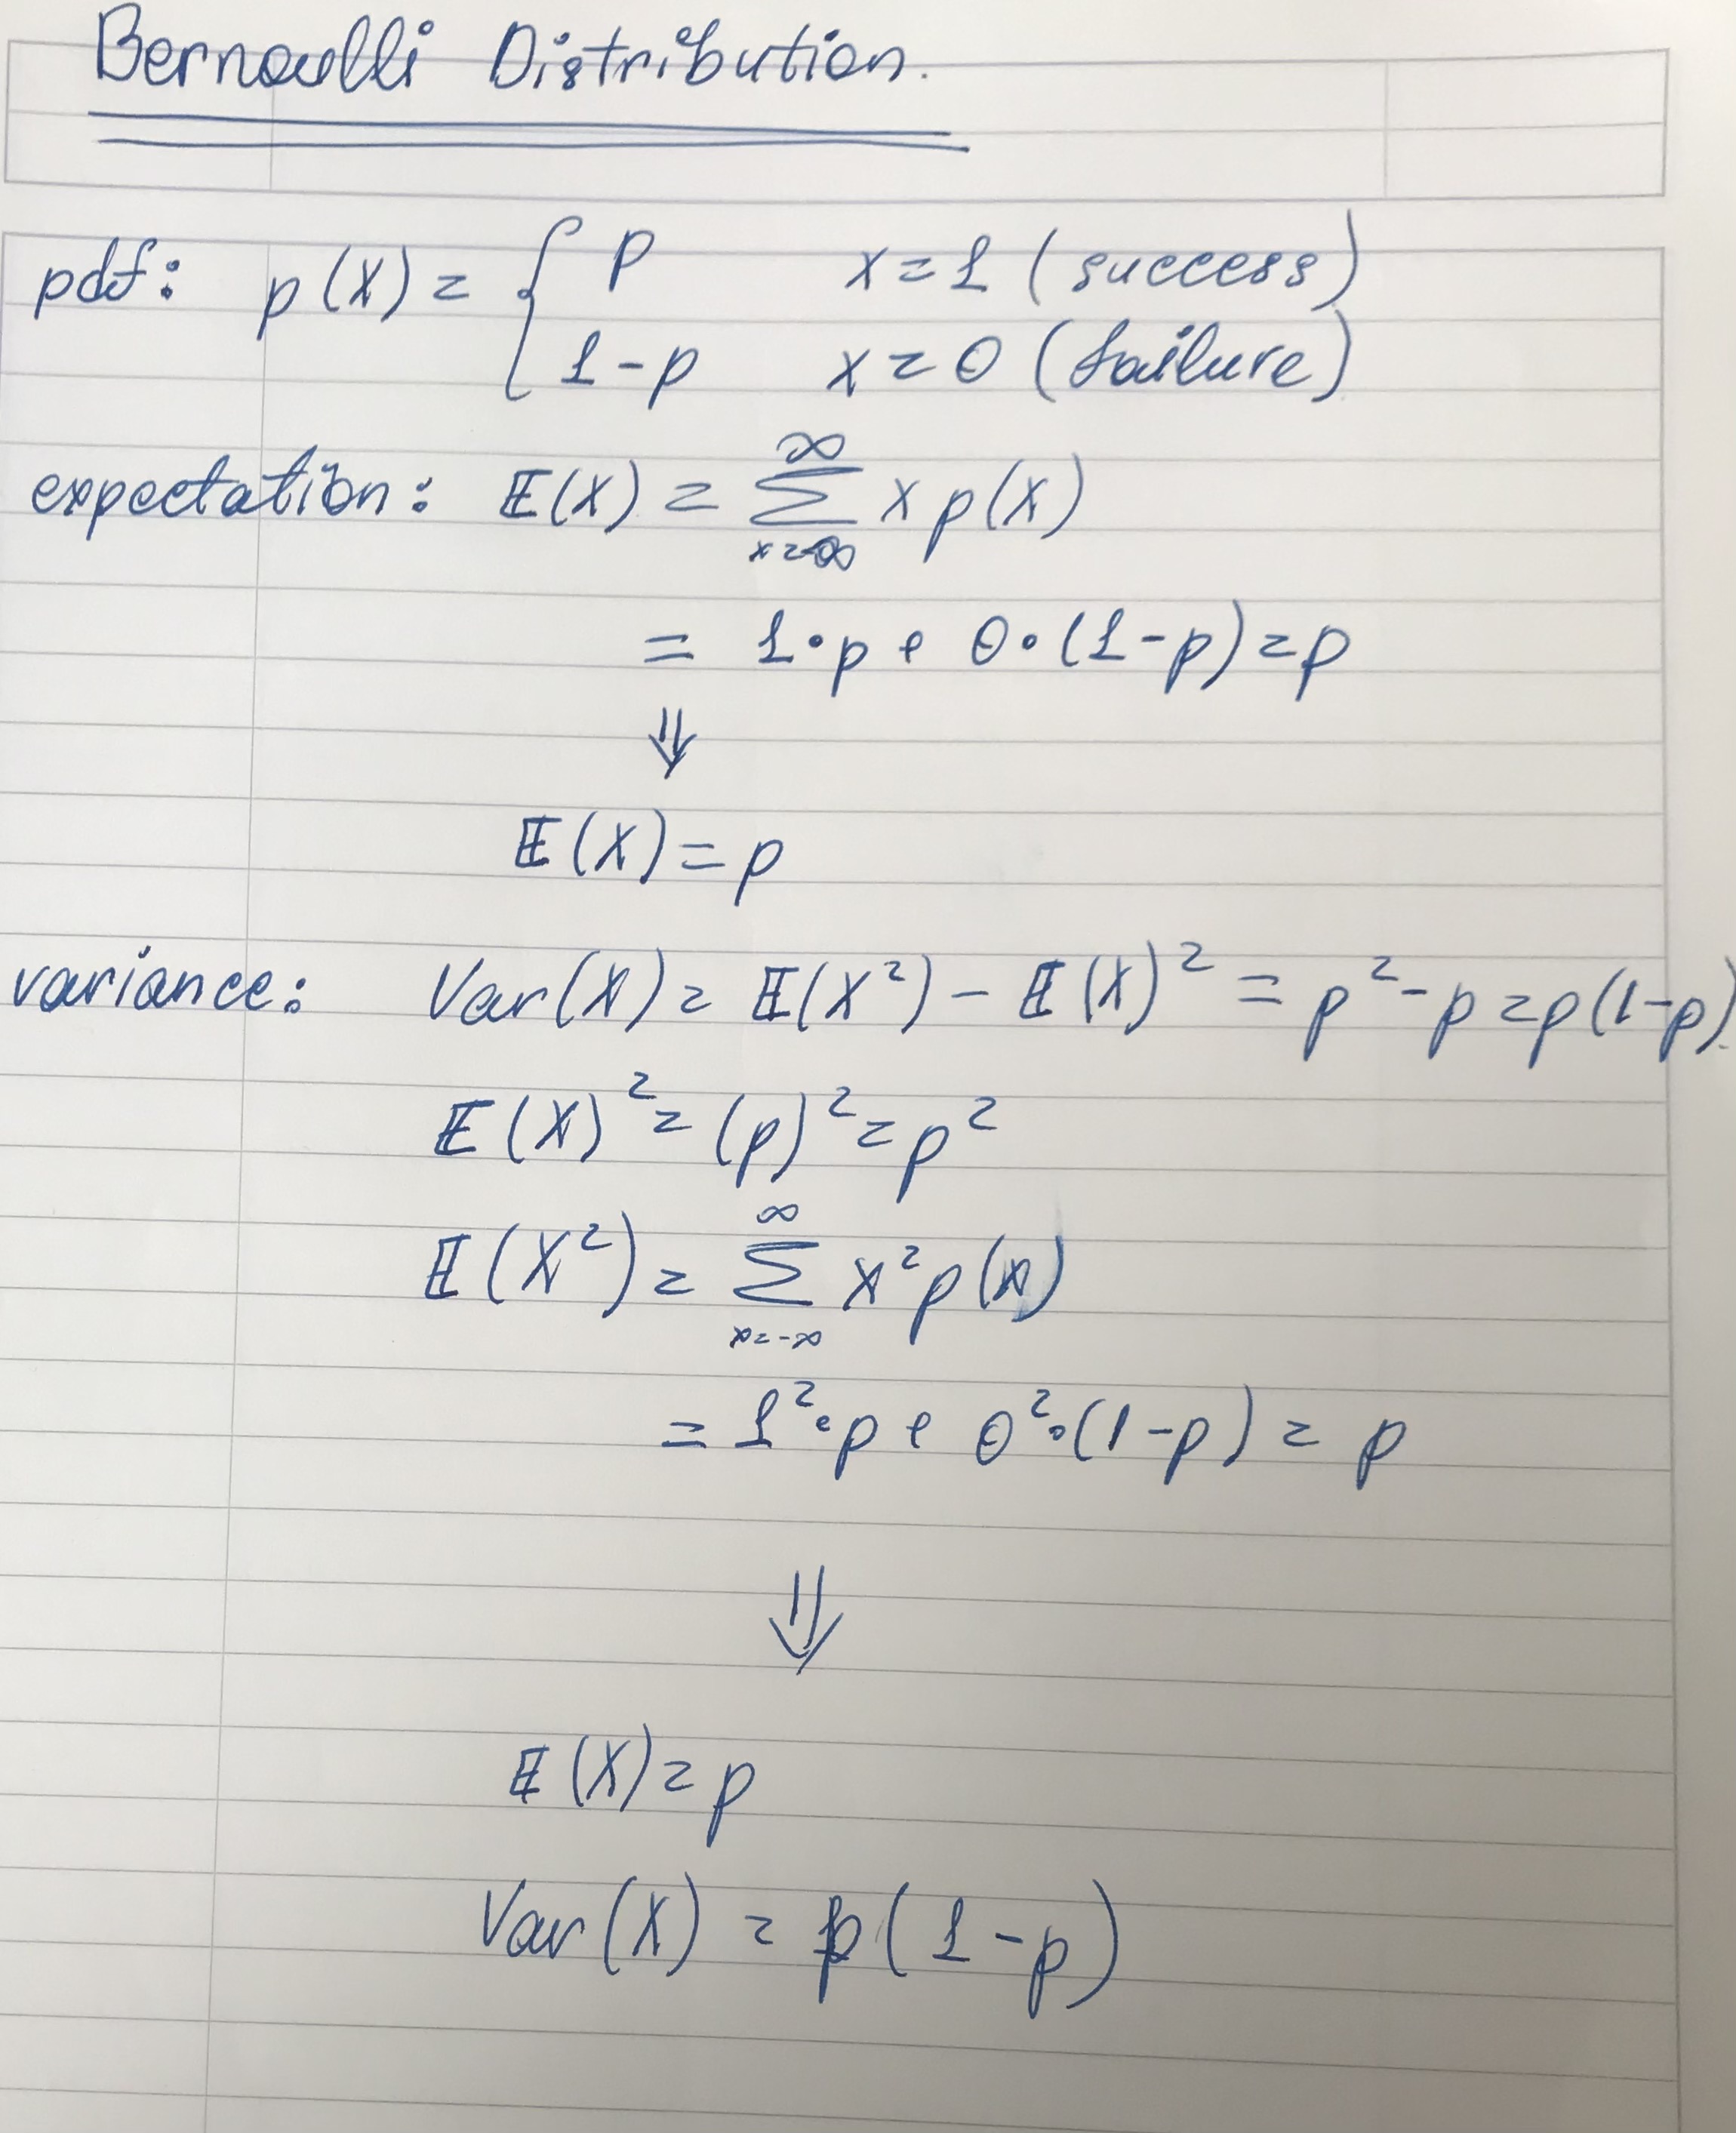 Bernoulli Distribution.
pdf: p(X) = { p x = 1 (success)
1 - p x = 0 (failure)
expectation: 𝔼(X) = ∑_{x=-∞}^{∞} x p(X)
= 1 • p + 0 • (1 - p) = p
⇓
𝔼(X) = p
variance: Var(X) = 𝔼(X²) - 𝔼(X)² = p² - p = p(1-p)
𝔼(X)² = (p)² = p²
𝔼(X²) = ∑_{x=-∞}^{∞} x² p(x)
= 1² • p + 0² • (1 - p) = p
⇓
𝔼(X) = p
Var(X) = p(1 - p)